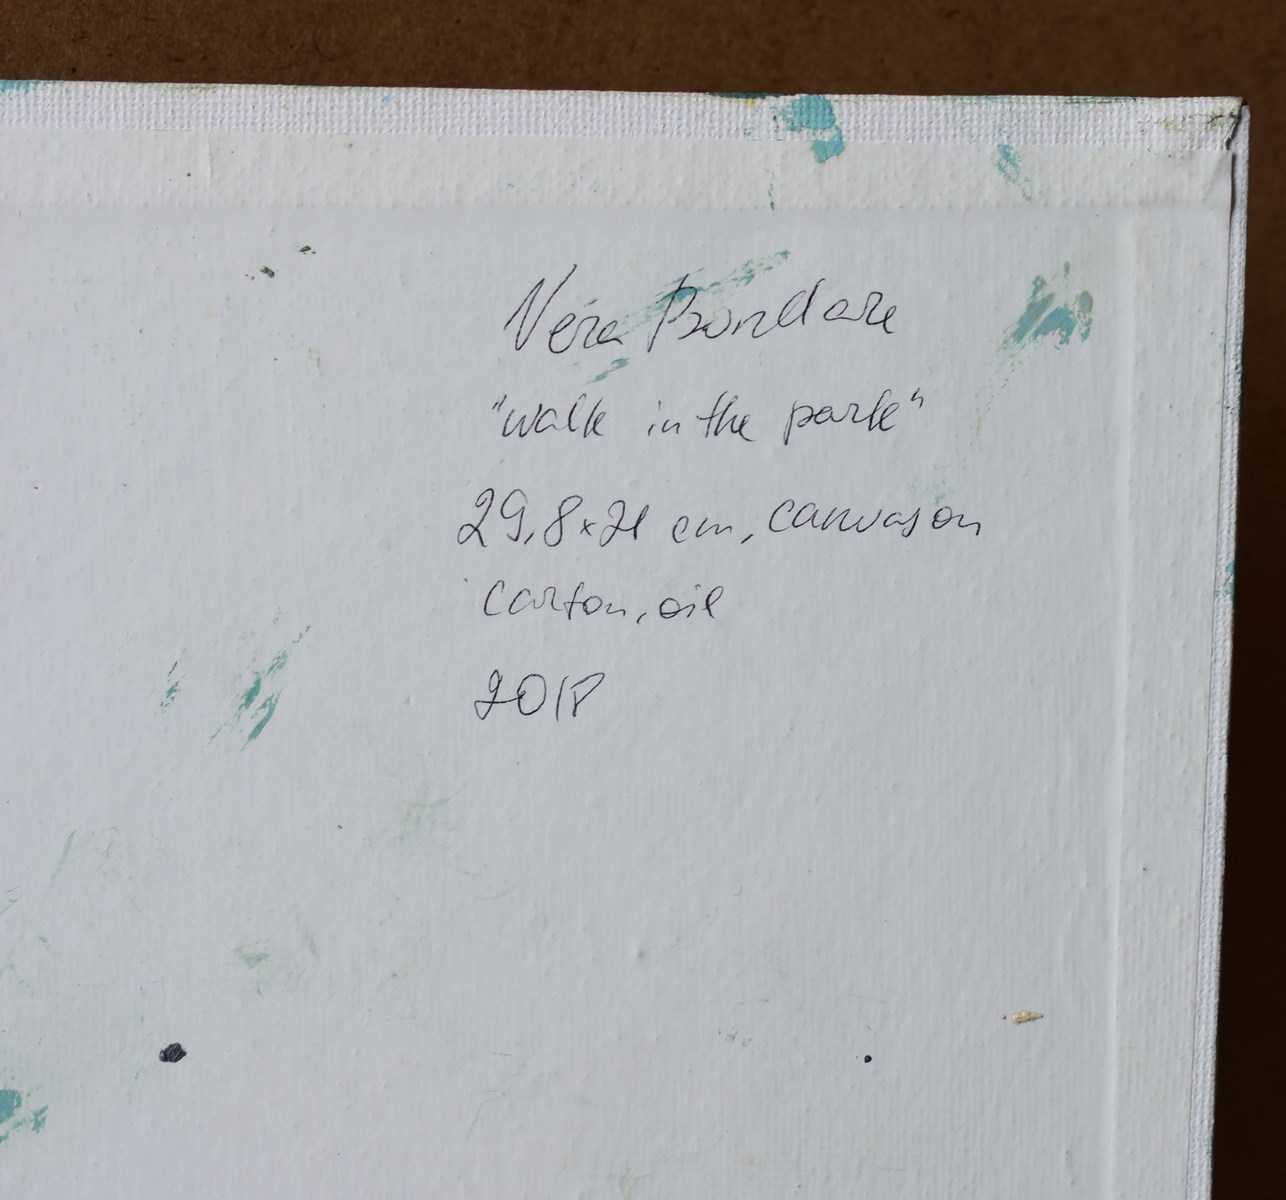 Vera Bondare
"walk in the park"
29,8x21 cm, canvas on
carton, oil
2018